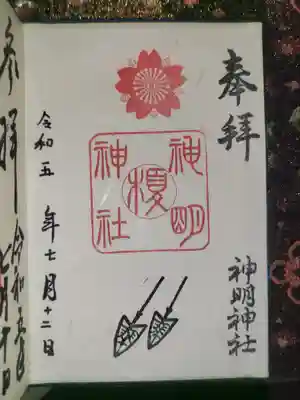 奉拝
神明神社
神明
榎
神社
令和五年七月十二日
参拝